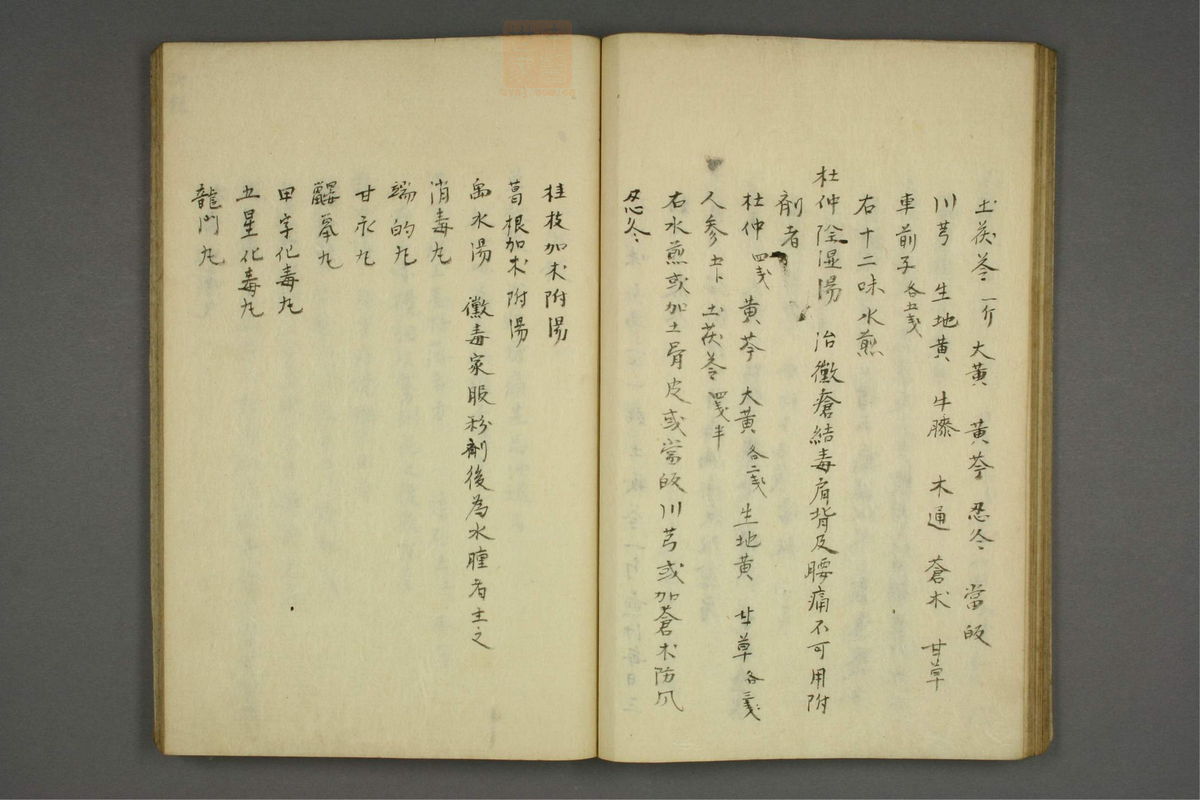 土茯苓一斤 大黄 黄芩 忍冬 當皈
川芎 生地黄 牛膝 木通 蒼朮 甘草
車前子各五戔
右十二味水煎
杜仲除湿湯 治黴瘡結毒肩背及腰痛不可用附
剤者
杜仲四戔 黄芩 大黄各二戔 生地黄 甘草各三戔
人参五卜 土茯苓四戔半
右水煎或加土骨皮或當皈川芎或加蒼朮防风
忍冬
桂枝加朮附湯
葛根加朮附湯
禹水湯 黴毒家服粉劑後為水腫者主之
消毒丸
端的丸
甘汞丸
鼹𪃹丸
甲字化毒丸
五星化毒丸
龍門丸